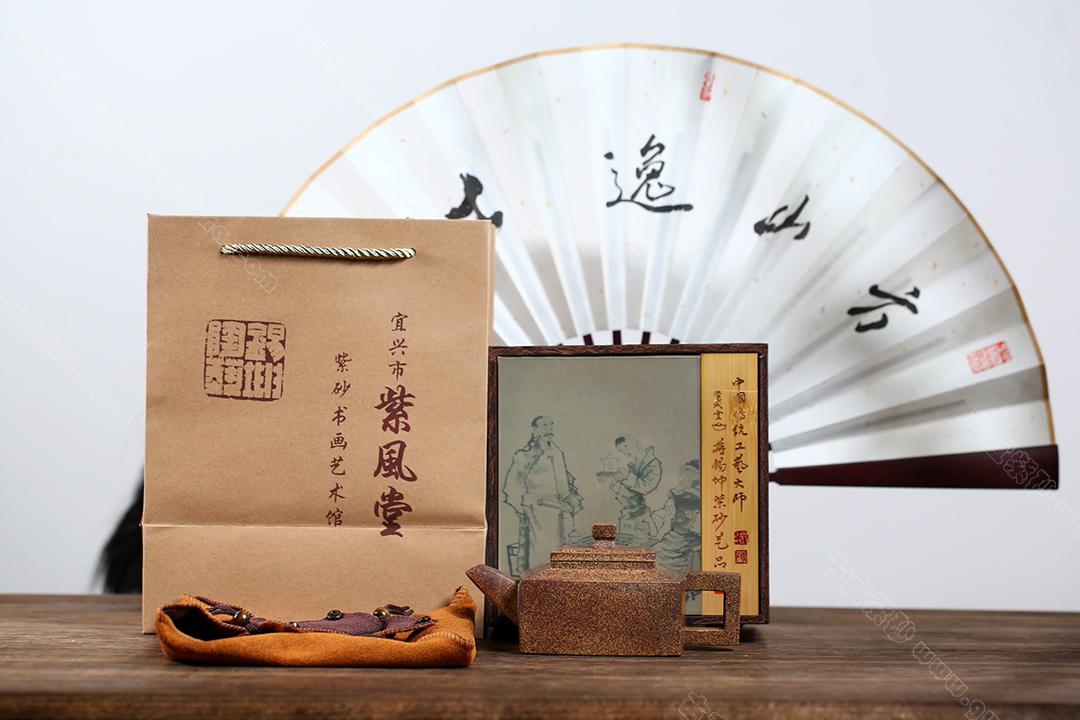 六山逸人
宜兴市
紫風堂
紫砂书画艺术馆
中国传统工艺大师
蒋锡坤紫砂艺品